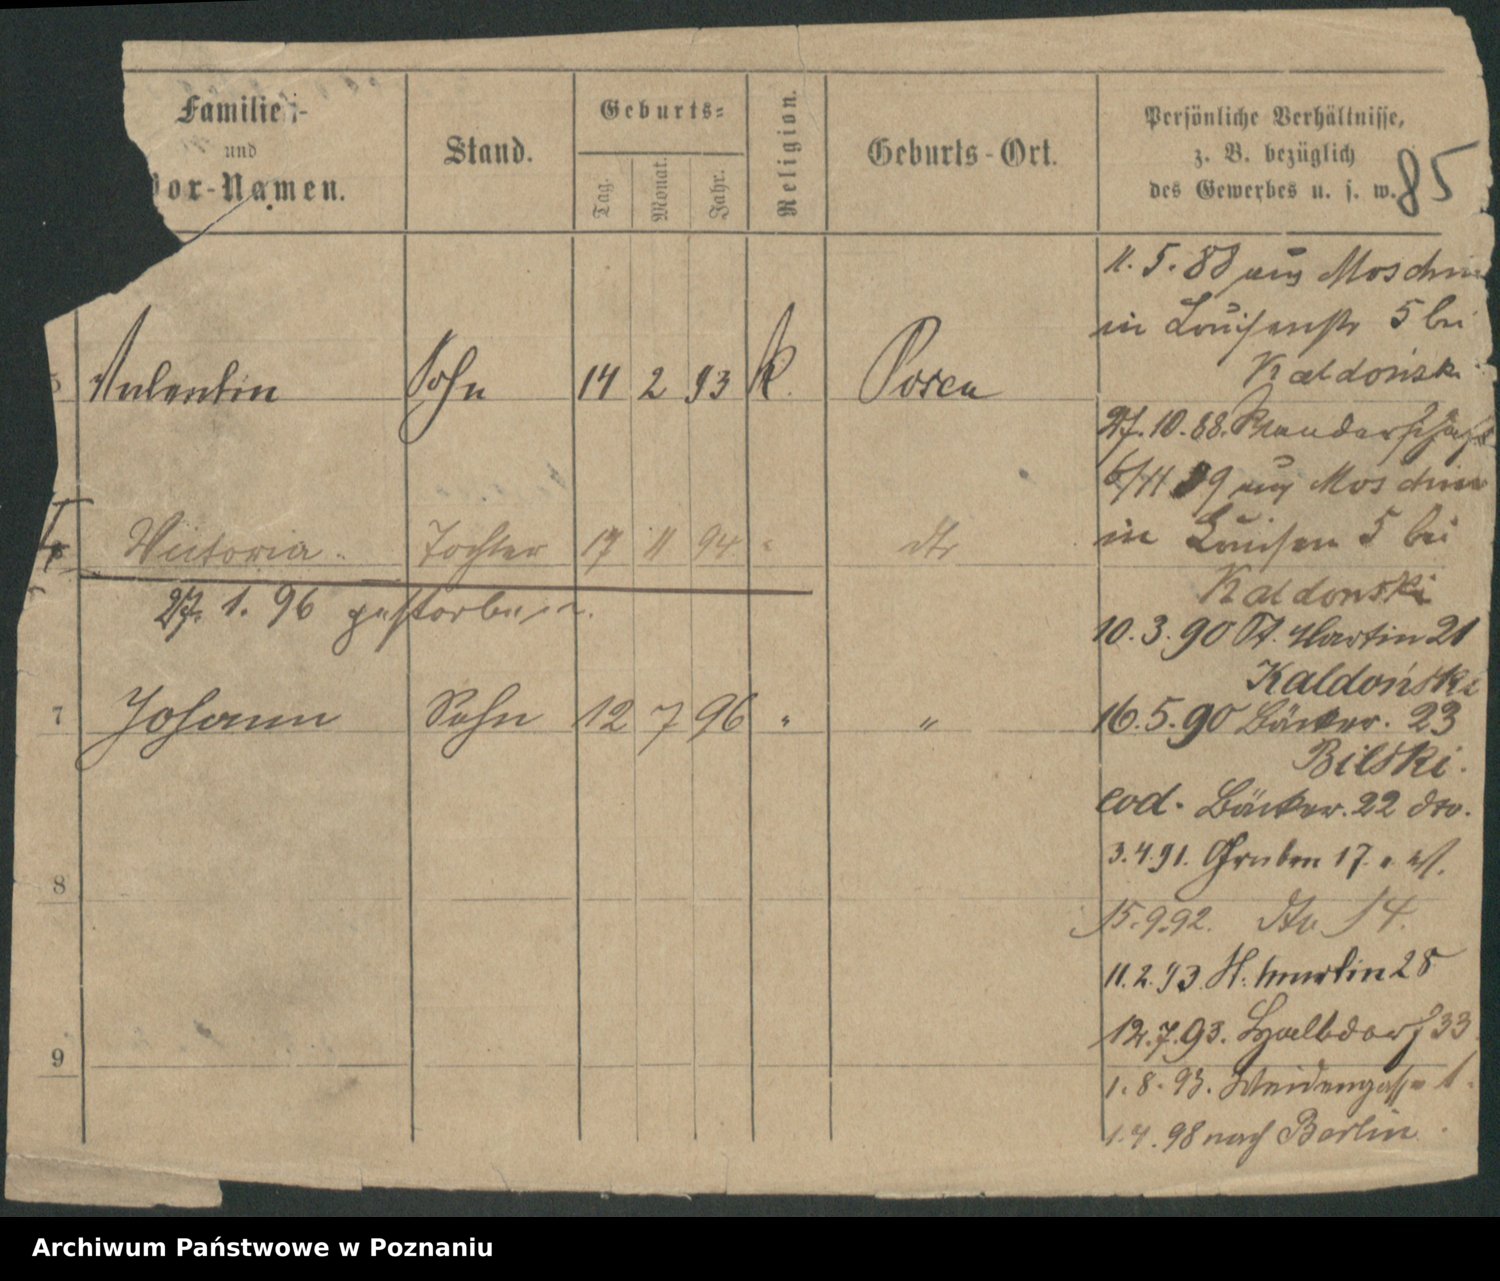 Familien-
und
Vor-Namen.
Stand.
Geburts-
Tag.
Monat.
Jahr.
Religion.
Geburts-Ort.
Persönliche Verhältnisse,
z. B. bezüglich
des Gewerbes u. s. w.
85
5 Valentin Sohn 14 2 93 k. Posen
Victoria Tochter 17 11 94 " dto
27. 1. 96 gestorben.
7 Johann Sohn 12 7 96 " "
8
9
11. 5. 88 aus Moschin
in Louisenstr 5 bei
Kaldońsk
27. 10. 88. Wanderschaft
6/11 89 aus Moschin
in Louisen 5 bei
Kaldonski
10. 3. 90 St. Martin 21
Kaldoński
16. 5. 90 Bäcker. 23
Bilski.
eod. Bäcker. 22 dto.
3. 4. 91. Gruben 17.
15. 9. 92. dto 14.
11. 2. 93 St. Martin 28
12. 7. 93. Halbdorf 33
1. 8. 93. Weidengasse 1.
1. 4. 98 nach Berlin.
Archiwum Państwowe w Poznaniu